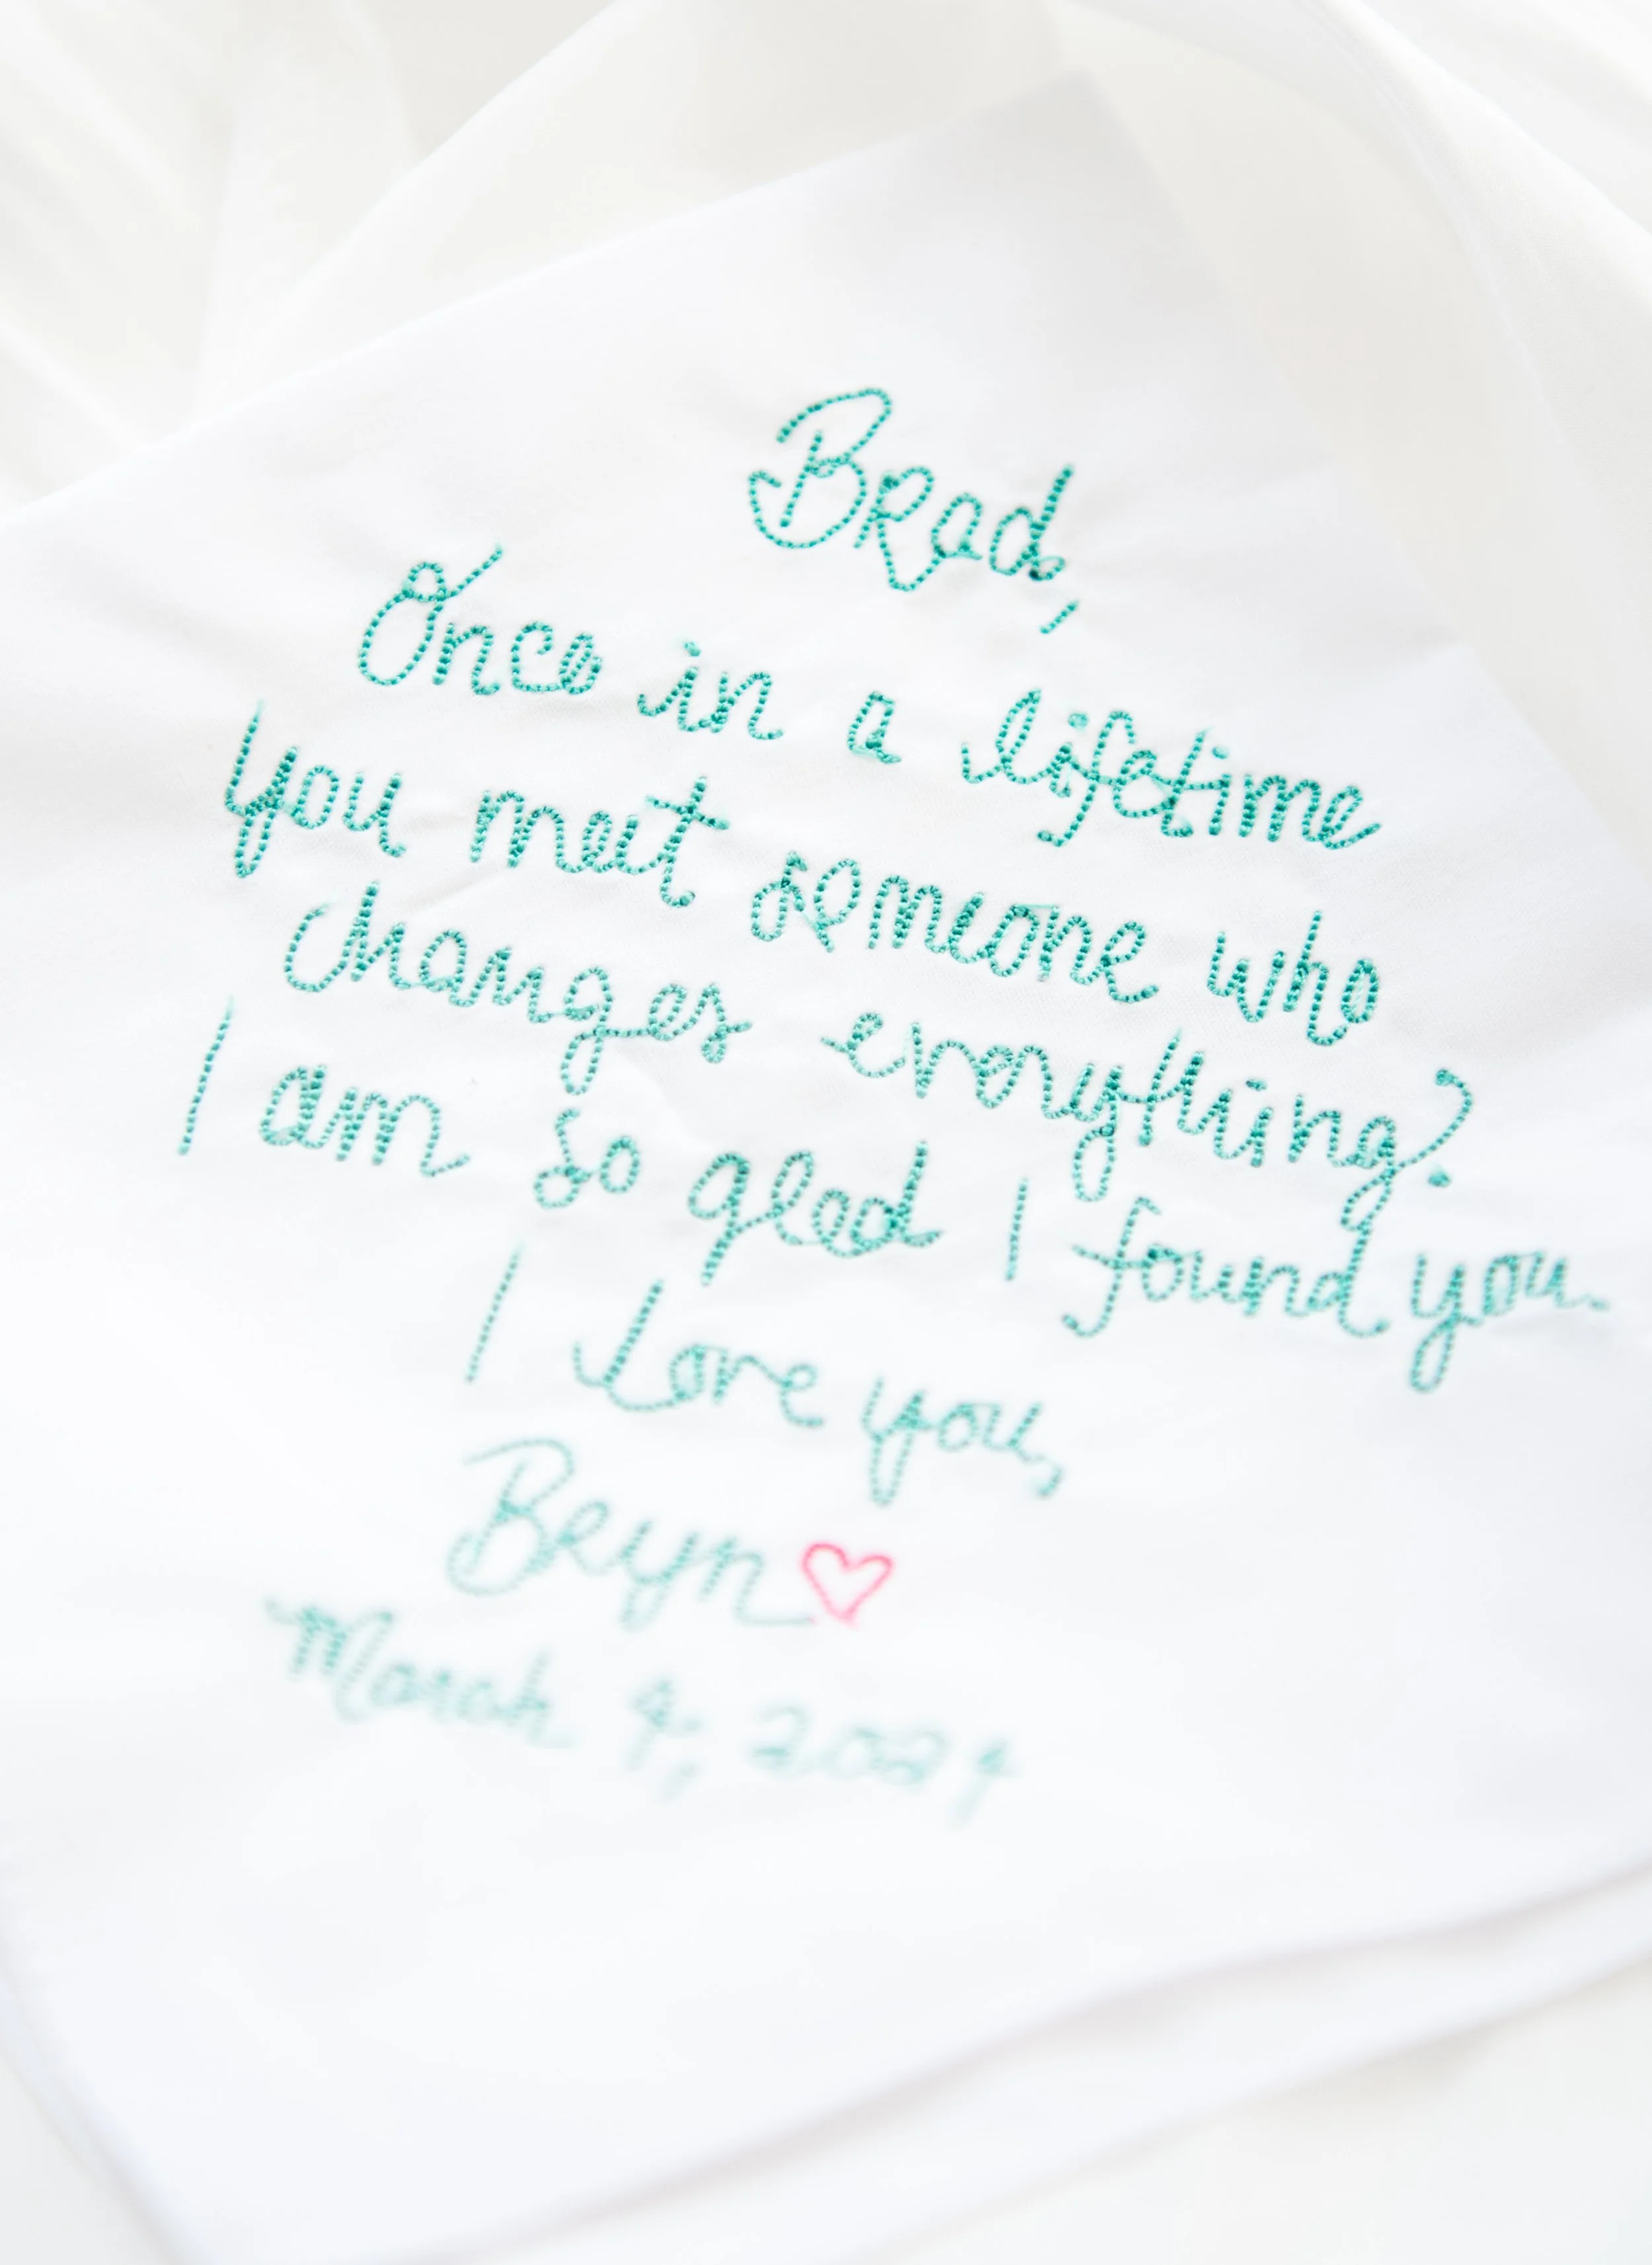 Brad,
Once in a lifetime
you meet someone who
changes everything.
I am so glad I found you.
I love you,
Bryn
March 9, 2024